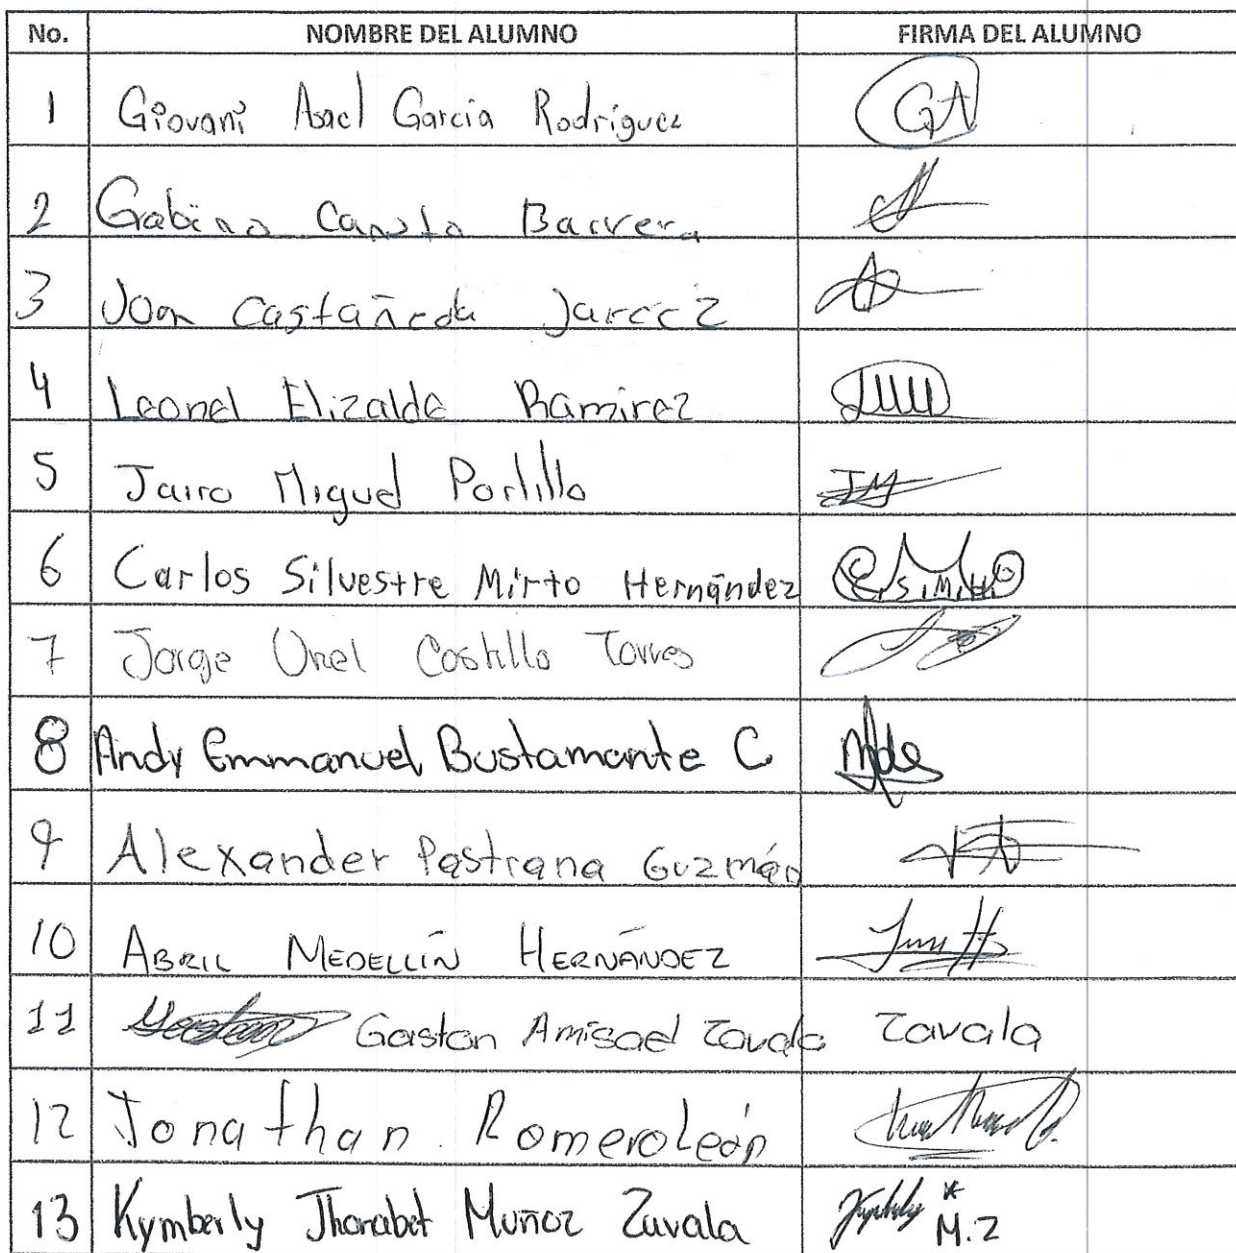 No. NOMBRE DEL ALUMNO FIRMA DEL ALUMNO
1 Giovani Asael Garcia Rodríguez GA
2 Gabino Canuto Barrera
3 Joan Castañeda Jaréz
4 Leonel Elizalde Ramirez
5 Jairo Miguel Portillo JM
6 Carlos Silvestre Mirto Hernández
7 Jorge Uriel Castillo Torres
8 Andy Emmanuel Bustamante C
9 Alexander Pastrana Guzmán
10 ABRIL MEDELLÍN HERNÁNDEZ
11 Gastan Amisael Zavala Zavala
12 Jonathan Romero León
13 Kymberly Jhorabet Muñoz Zavala M.Z